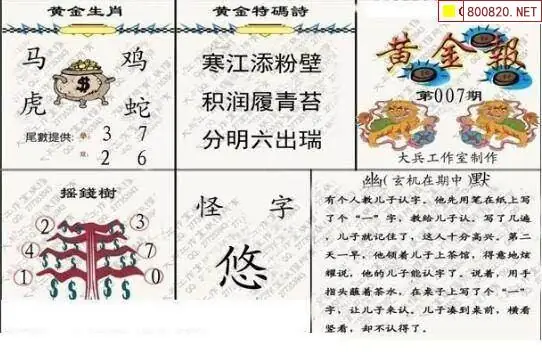 800820.NET
黄金生肖
马 鸡
虎 蛇
尾數提供：单：3 7
双：2 6
黄金特碼詩
寒江添粉壁
积润履青苔
分明六出瑞
黄金報
第007期
大兵工作室制作
摇錢樹
2 3
4 7
1 0
怪 字
悠
幽(玄机在期中)默
有个人教儿子认字。他先用笔在纸上写
了个“一”字，教给儿子认。写了几遍
，儿子就记住了，这人十分高兴。第二
天一早，他领着儿子上茶馆，得意地炫
耀说，他的儿子能认字了。说着，用手
指头蘸着茶水，在桌子上写了个“一”
字，让儿子来认。儿子凑到来前，横看
竖看，却不认得了。